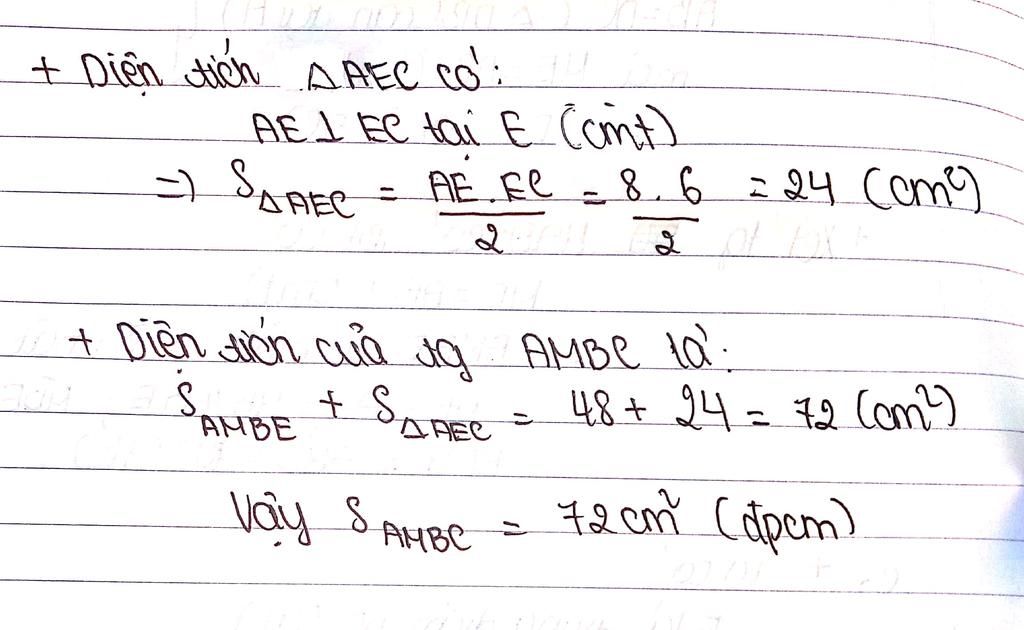 + Diện tích ΔAEC có:
AE ⊥ EC tại E (cmt)
=> SΔAEC = AE . EC / 2 = 8 . 6 / 2 = 24 (cm²)
+ Diện tích của tg AMBC là:
SAMBE + SΔAEC = 48 + 24 = 72 (cm²)
Vậy SAMBC = 72 cm² (đpcm)